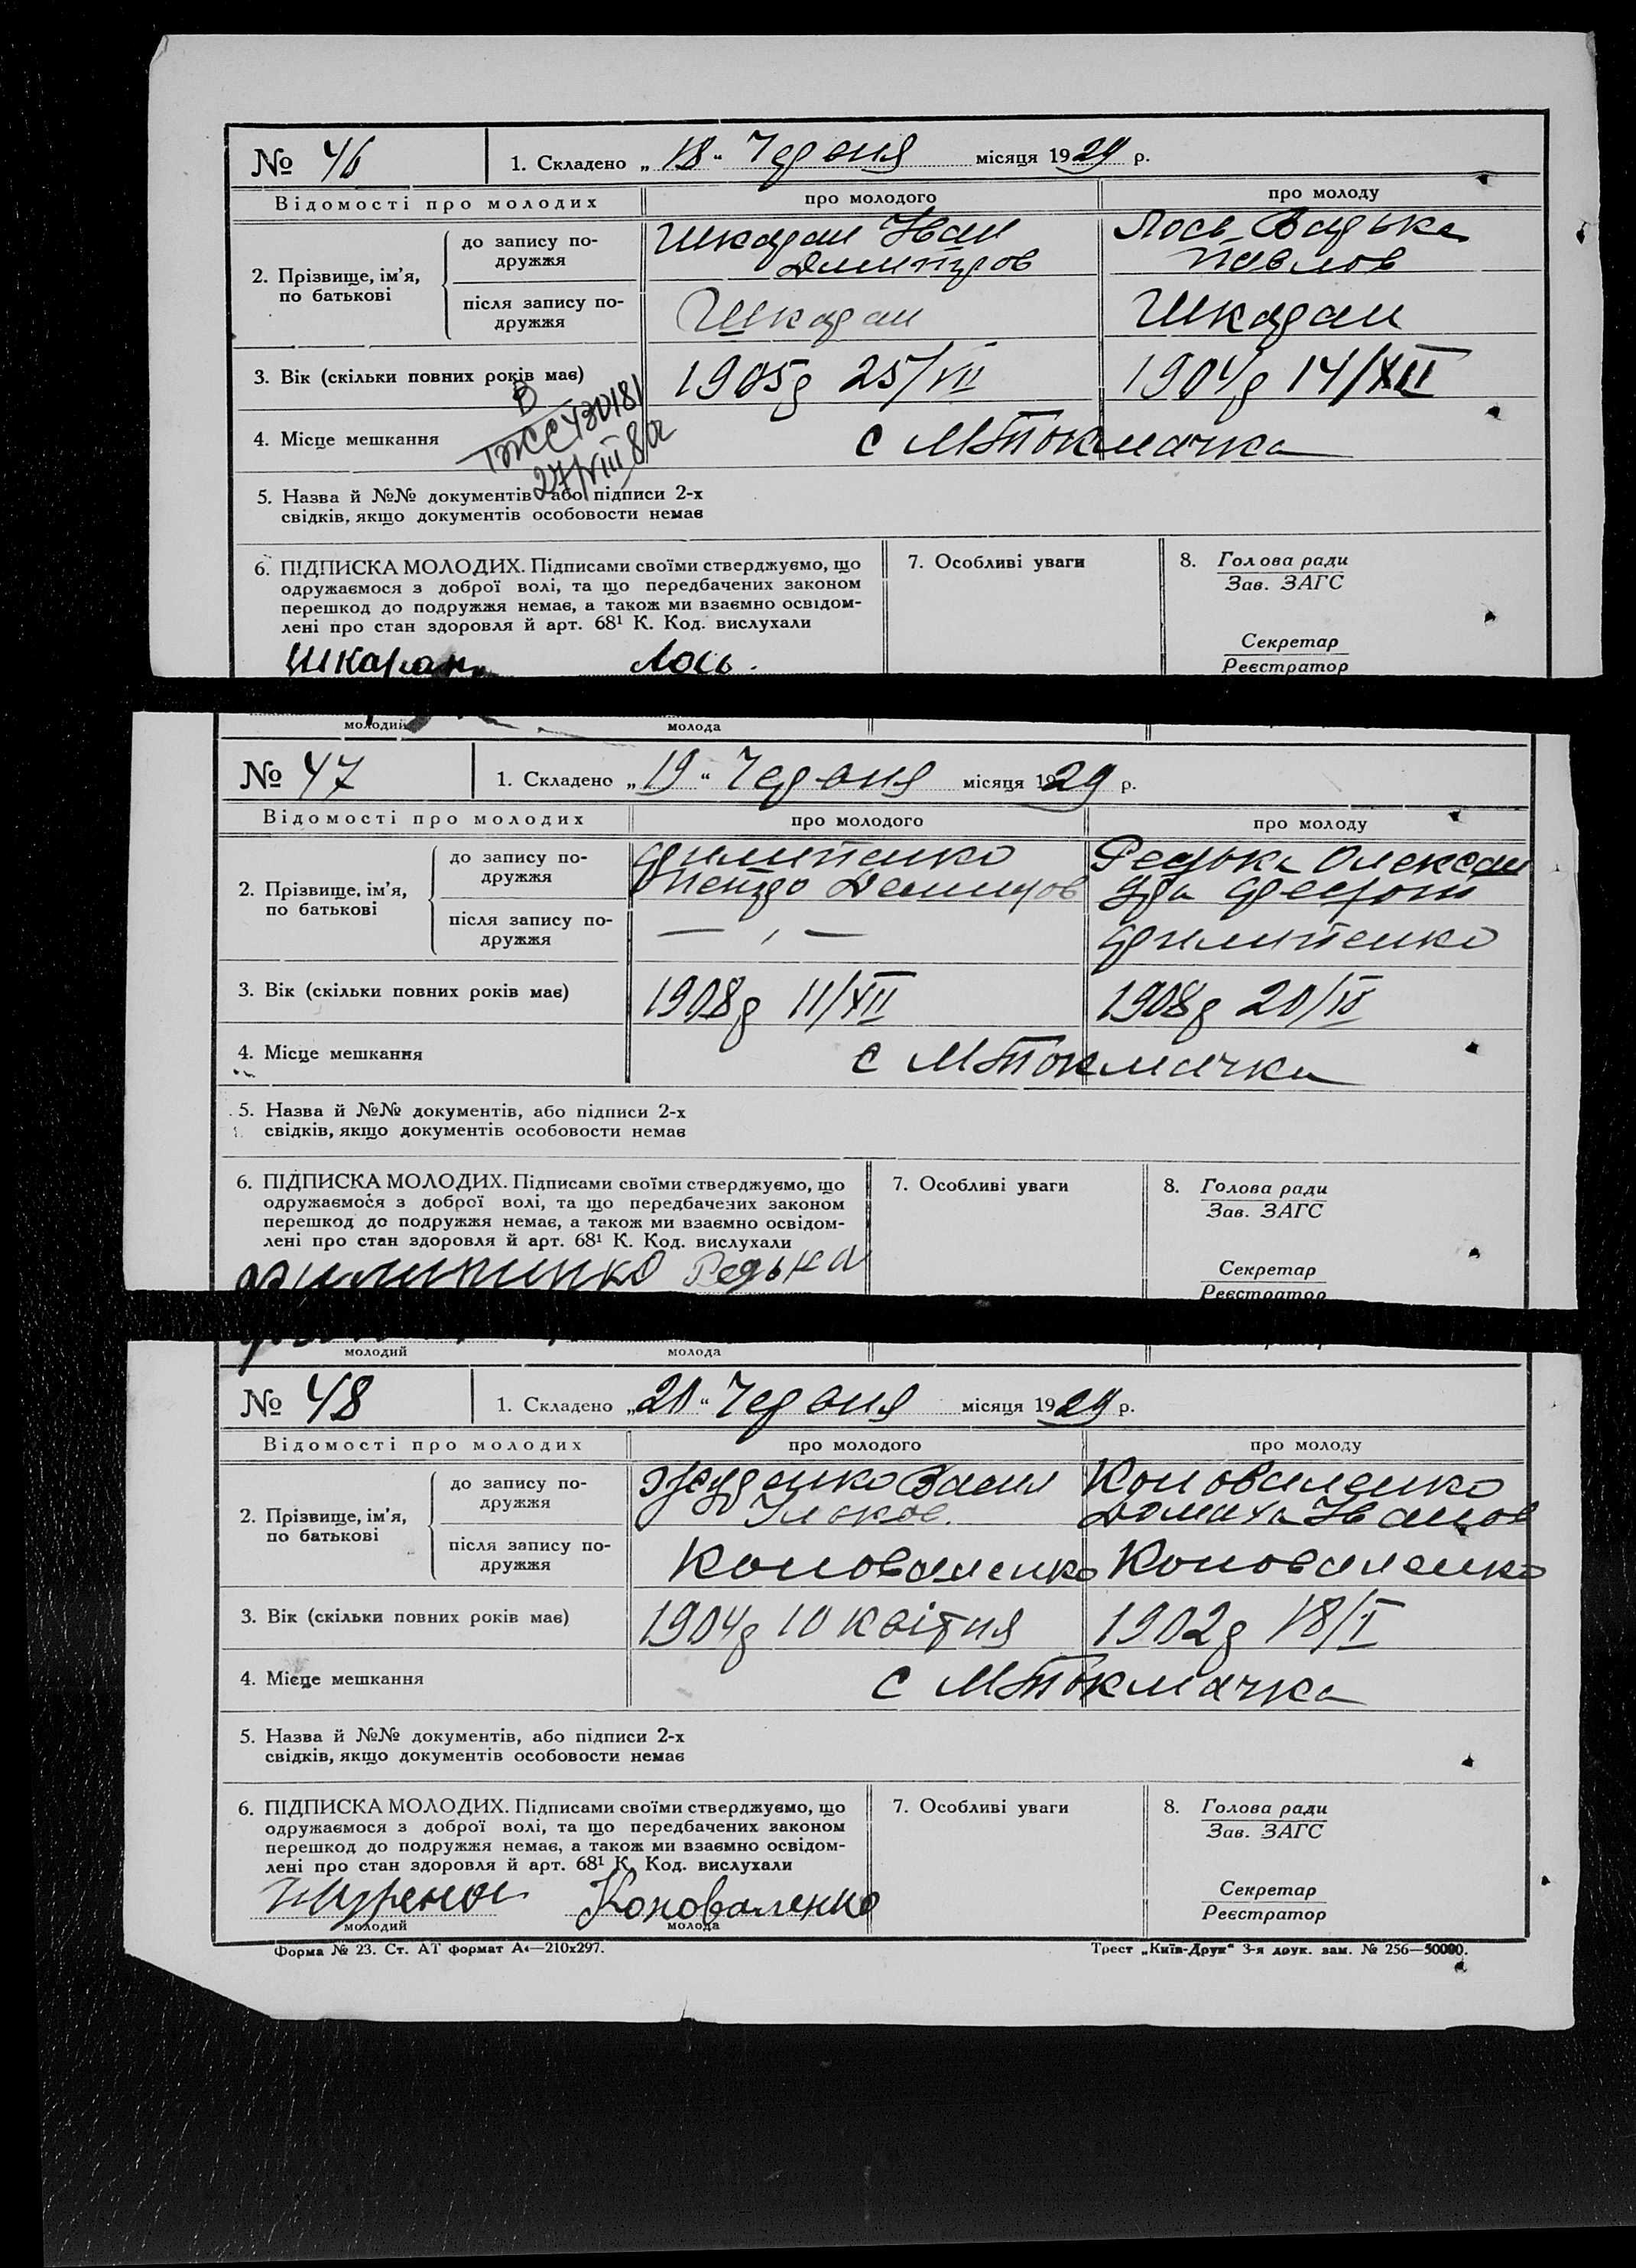 № 46 1. Складено „18“ Червня місяця 1929 р.
Відомості про молодих про молодого про молоду
2. Прізвище, ім’я, по батькові
до запису подружжя
Шкаран Иван Лось Варька
Дмитров Павлов
після запису подружжя
Шкаран Шкаран
3. Вік (скільки повних років має) 1905р 25/VII 1904р 14/XII
В
27/VIII 81
4. Місце мешкання с МТокмачка
5. Назва й №№ документів або підписи 2-х
свідків, якщо документів особовости немає
6. ПІДПИСКА МОЛОДИХ. Підписами своїми стверджуємо, що
одружаємося з доброї волі, та що передбачених законом
перешкод до подружжя немає, а також ми взаємно освідом-
лені про стан здоровля й арт. 68¹ К. Код. вислухали
7. Особливі уваги
8. Голова ради
Зав. ЗАГС
Секретар
Реєстратор
Шкаран Лось.
молодий молода
№ 47 1. Складено „19“ Червня місяця 1929 р.
Відомості про молодих про молодого про молоду
2. Прізвище, ім’я, по батькові
до запису подружжя
Филипенко Редька Олексан
Петро Демидов дра Федот
після запису подружжя
— , — Филипенко
3. Вік (скільки повних років має) 1908р 11/XII 1908р 20/IV
4. Місце мешкання с МТокмачка
5. Назва й №№ документів, або підписи 2-х
свідків, якщо документів особовости немає
6. ПІДПИСКА МОЛОДИХ. Підписами своїми стверджуємо, що
одружаємося з доброї волі, та що передбачених законом
перешкод до подружжя немає, а також ми взаємно освідом-
лені про стан здоровля й арт. 68¹ К. Код. вислухали
7. Особливі уваги
8. Голова ради
Зав. ЗАГС
Секретар
Реєстратор
Филипинко Редька
молодий молода
№ 48 1. Складено „20“ Червня місяця 1929 р.
Відомості про молодих про молодого про молоду
2. Прізвище, ім’я, по батькові
до запису подружжя
Журенко Васил Коноваленко
Яков. Домаха Иванов
після запису подружжя
Коноваленко Коноваленко
3. Вік (скільки повних років має) 1904р 10 квітня 1902р 18/I
4. Місце мешкання с МТокмачка
5. Назва й №№ документів, або підписи 2-х
свідків, якщо документів особовости немає
6. ПІДПИСКА МОЛОДИХ. Підписами своїми стверджуємо, що
одружаємося з доброї волі, та що передбачених законом
перешкод до подружжя немає, а також ми взаємно освідом-
лені про стан здоровля й арт. 68¹ К. Код. вислухали
7. Особливі уваги
8. Голова ради
Зав. ЗАГС
Секретар
Реєстратор
Коноваленко
молодий молода
Форма № 23. Ст. АТ формат А₄—210х297. Трест „Київ-Друк“ 3-я друк. зам. № 256—50000.